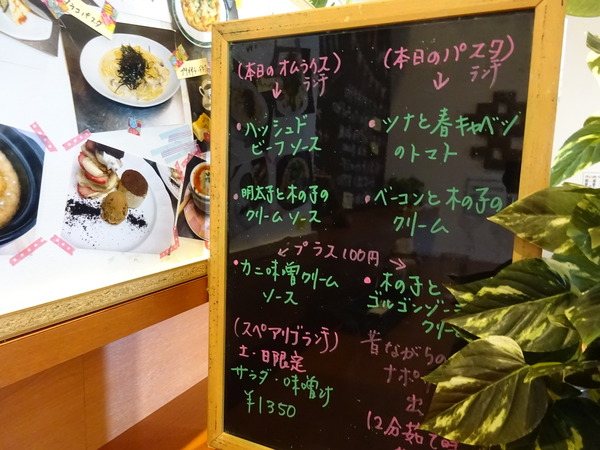 (本日のオムライス)
ランチ
↓
・ハッシュド
ビーフソース
・明太子と木の子の
クリームソース
← プラス100円 →
・カニ味噌クリーム
ソース
(スペアリブランチ)
土・日限定
サラダ・味噌汁
¥1350
(本日のパスタ)
ランチ
↓
・ツナと春キャベツ
のトマト
・ベーコンと木の子の
クリーム
・木の子と
ゴルゴンゾー
クリー
昔ながらの
ナポ
出
12分茹で